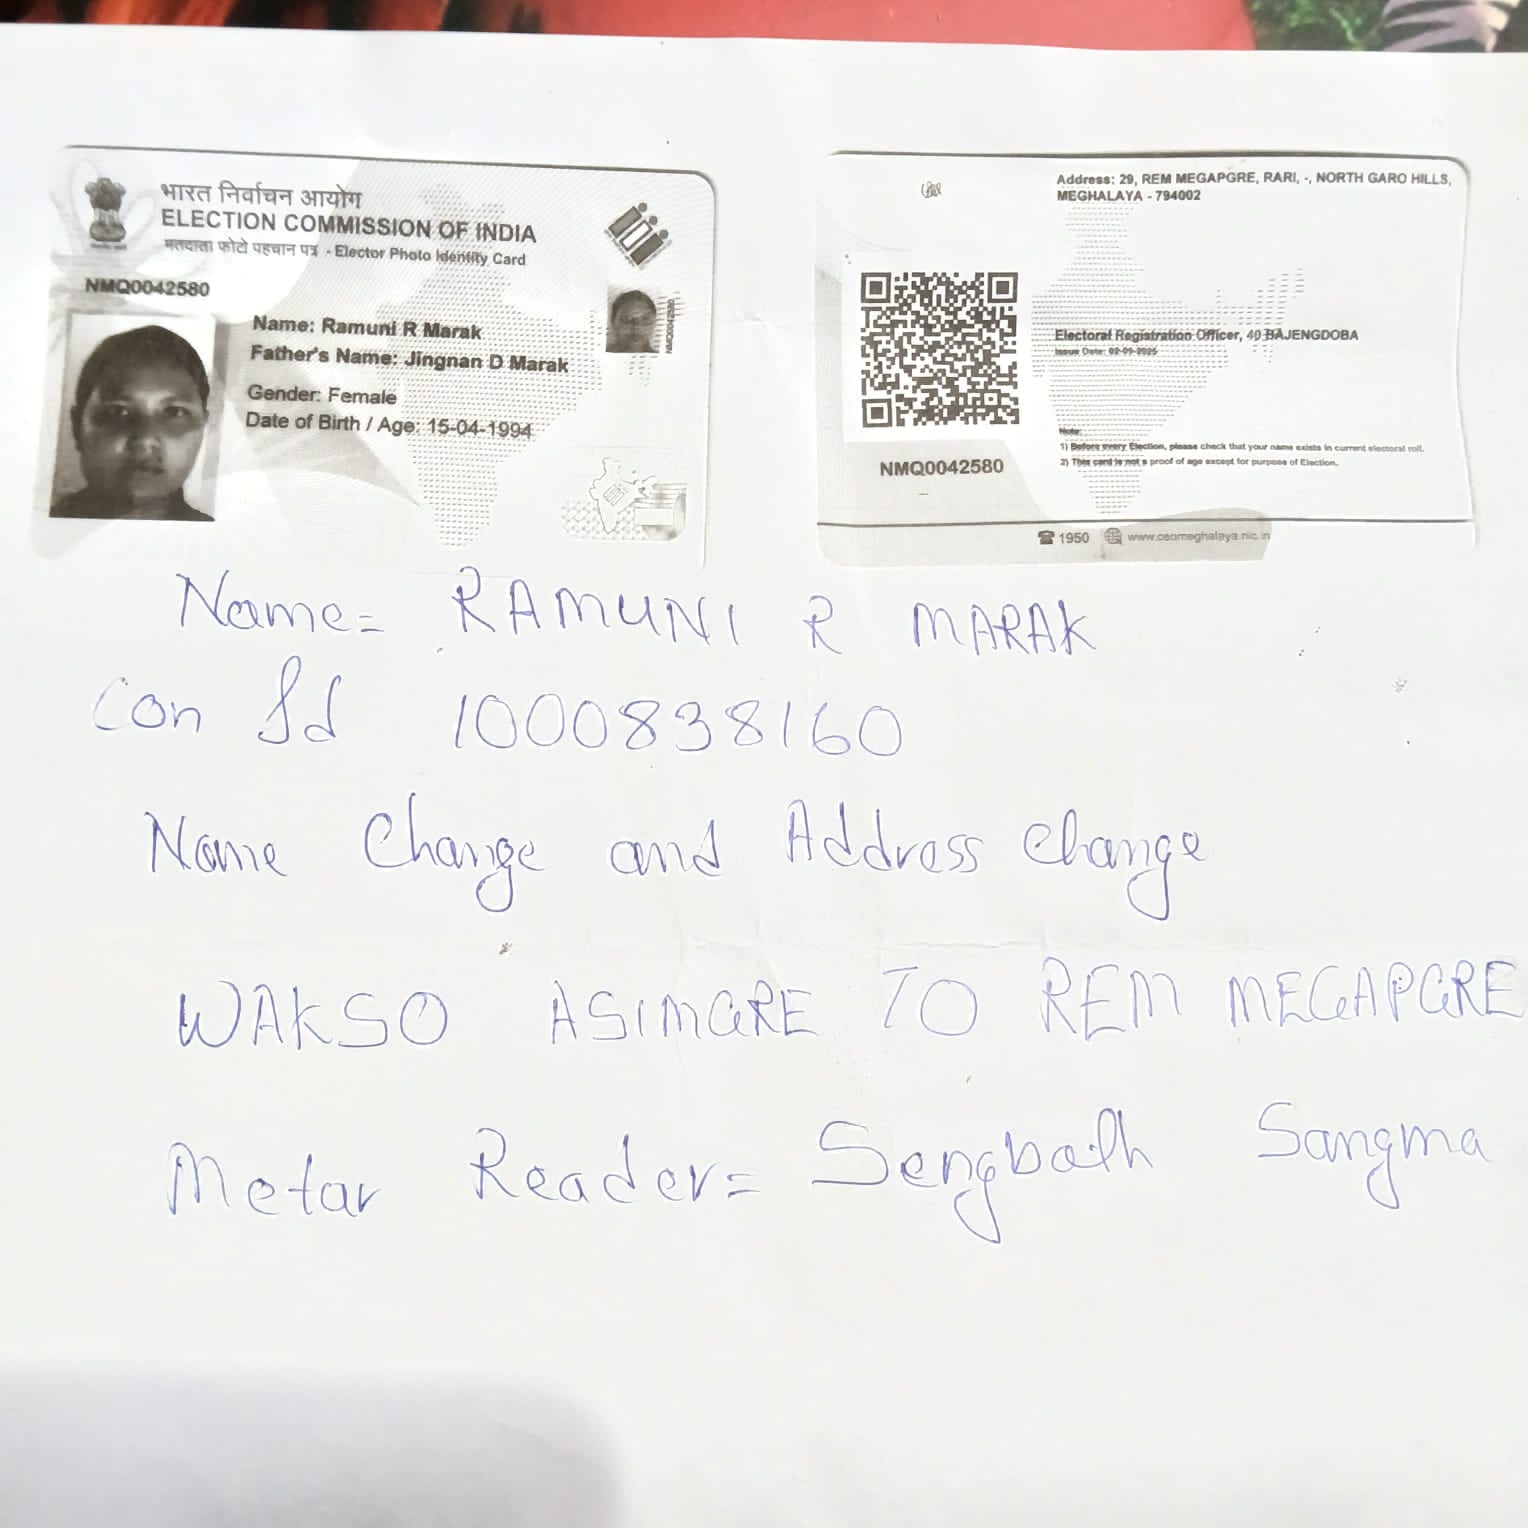 भारत निर्वाचन आयोग
ELECTION COMMISSION OF INDIA
मतदाता फोटो पहचान पत्र - Elector Photo Identity Card
NMQ0042580
Name: Ramuni R Marak
Father's Name: Jingnan D Marak
Gender: Female
Date of Birth / Age: 15-04-1994
NMQ0042580
Address: 29, REM MEGAPGRE, RARI, -, NORTH GARO HILLS,
MEGHALAYA - 794002
Electoral Registration Officer, 40 BAJENGDOBA
Issue Date: 02-09-2025
Note:
1) Before every Election, please check that your name exists in current electoral roll.
2) This card is not a proof of age except for purpose of Election.
NMQ0042580
1950 www.ceomeghalaya.nic.in
Name= RAMUNI R MARAK
Con Id 1000838160
Name Change and Address change
WAKSO ASIMGRE TO REM MEGAPGRE
Metar Reader= Sengbath Sangma